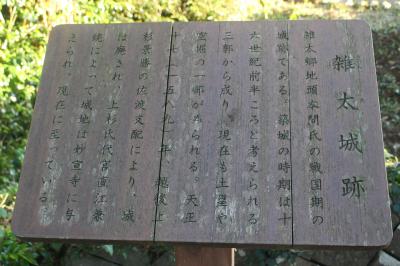 雑太城跡
雑太郷地頭本間氏の戦国期の
城跡である。築城の時期は十
六世紀前半ころと考えられる
三郭から成り、現在も土塁や
空堀の一部がみられる。天正
十七(一五八九)年、越後上
杉景勝の佐渡支配により、城
は廃され、上杉氏代官直江兼
続によって城地は妙宣寺に与
えられ、現在に至っている。